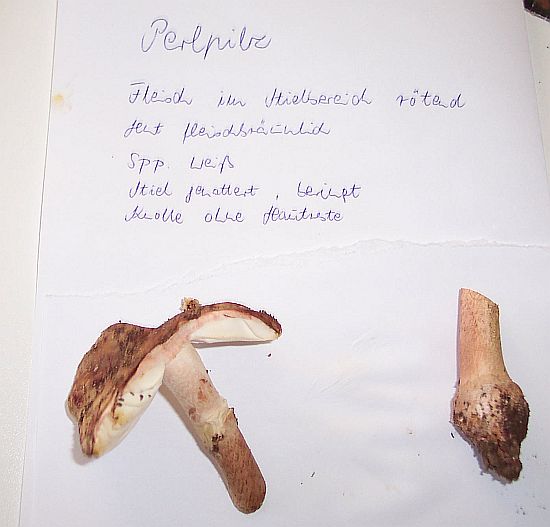 Perlpilz
Fleisch im Stielbereich rötend
Hut fleischbräunlich
Spp. weiß
Stiel genattert, beringt
Knolle ohne Hautreste